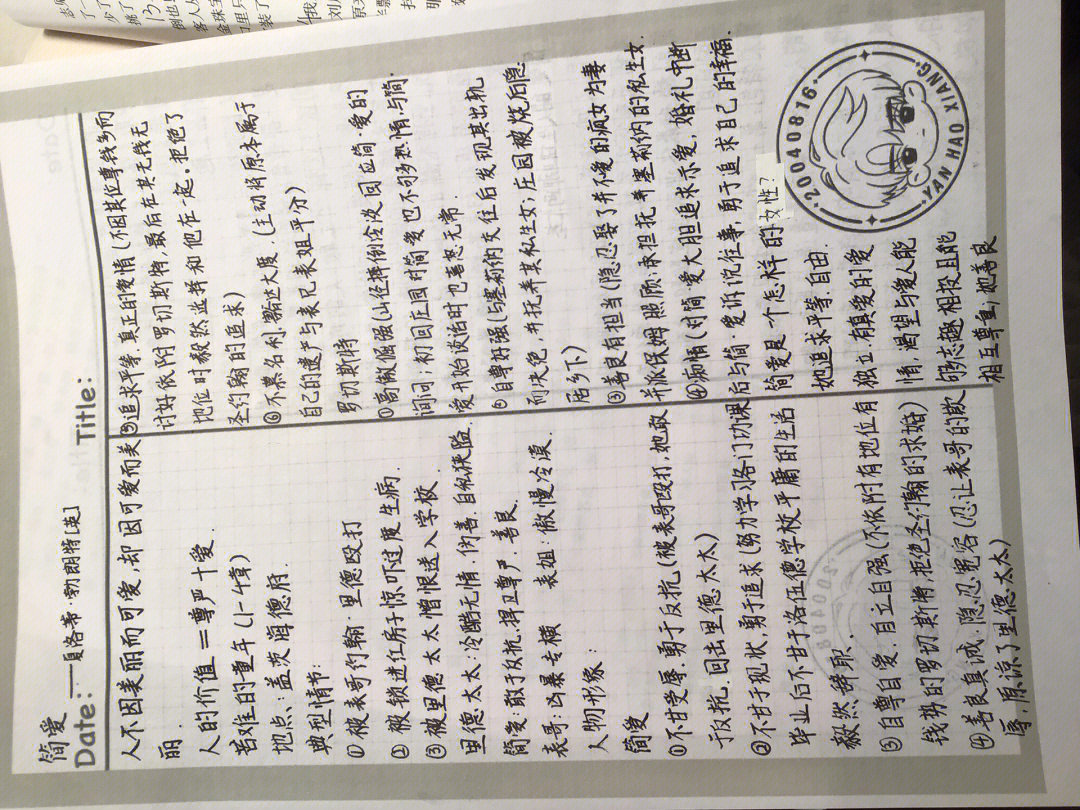 简爱
——夏洛蒂·勃朗特[英]
Date:
Title:
人不因美丽而可爱,却因可爱而美
丽.
人的价值=尊严+爱.
苦难的童年(1-4章)
地点:盖茨海德府.
典型情节:
①被表哥约翰·里德殴打
②被锁进红房子惊吓过度生病.
③被里德太太憎恨送入学校
里德太太:冷酷无情.伪善.自私狭隘.
简爱敢于反抗.捍卫尊严.善良.
表哥:凶暴专横 表姐:傲慢冷漠.
人物形象:
简爱
①不甘受辱.勇于反抗.(被表哥殴打,她敢
于反抗.回击里德太太)
②不甘于现状,勇于追求(努力学习各门功课
毕业后不甘于洛伍德学校平庸的生活
毅然辞职.
③自尊自爱.自立自强(不依附有地位有
钱势的罗切斯特,拒绝圣约翰的求婚)
④善良真诚.隐忍宽容(忍让表哥的欺
辱,原谅了里德太太)
⑤追求平等.真正的爱情(不因其位尊钱多而
讨好依附罗切斯特,最后在其无钱无
地位时毅然选择和他在一起.拒绝了
圣约翰的追求)
⑥不慕名利.豁达大度.(主动将原本属于
自己的遗产与表兄表姐平分)
罗切斯特
①高傲倔强(山径摔倒冷淡回应简·爱的
问询;初回庄园对简爱也不甚热情,与简·
爱开始谈话时也喜怒无常.
②自尊好强(与塞莉纳交往后发现其出轨
而决绝,并抚养其私生女;庄园被烧后隐
居乡下)
③善良有担当(隐忍娶了并不爱的疯女为妻
并派保姆照顾;承担抚养塞莉纳的私生女.
④痴情(对简爱大胆追求示爱,婚礼中断
后与简·爱诉说往事,勇于追求自己的幸福.
简爱是一个怎样的女性?
她追求平等.自由
独立.有真爱的爱
情,渴望与爱人能
够志趣相投且能
相互尊重,她善良
·20040816·
YAN HAO XIANG